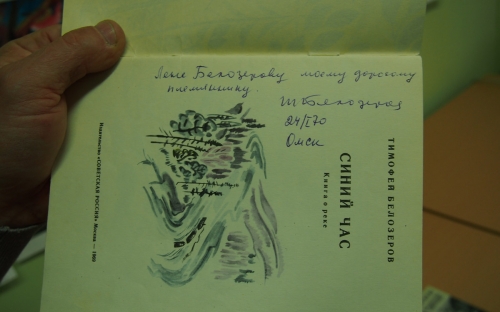 Лене Белозерову моему дорогому
племяннику
Т Белозеров
24/I 70
Омск
ТИМОФЕЙ БЕЛОЗЕРОВ
СИНИЙ ЧАС
Книга о реке
Издательство «СОВЕТСКАЯ РОССИЯ» Москва — 1969